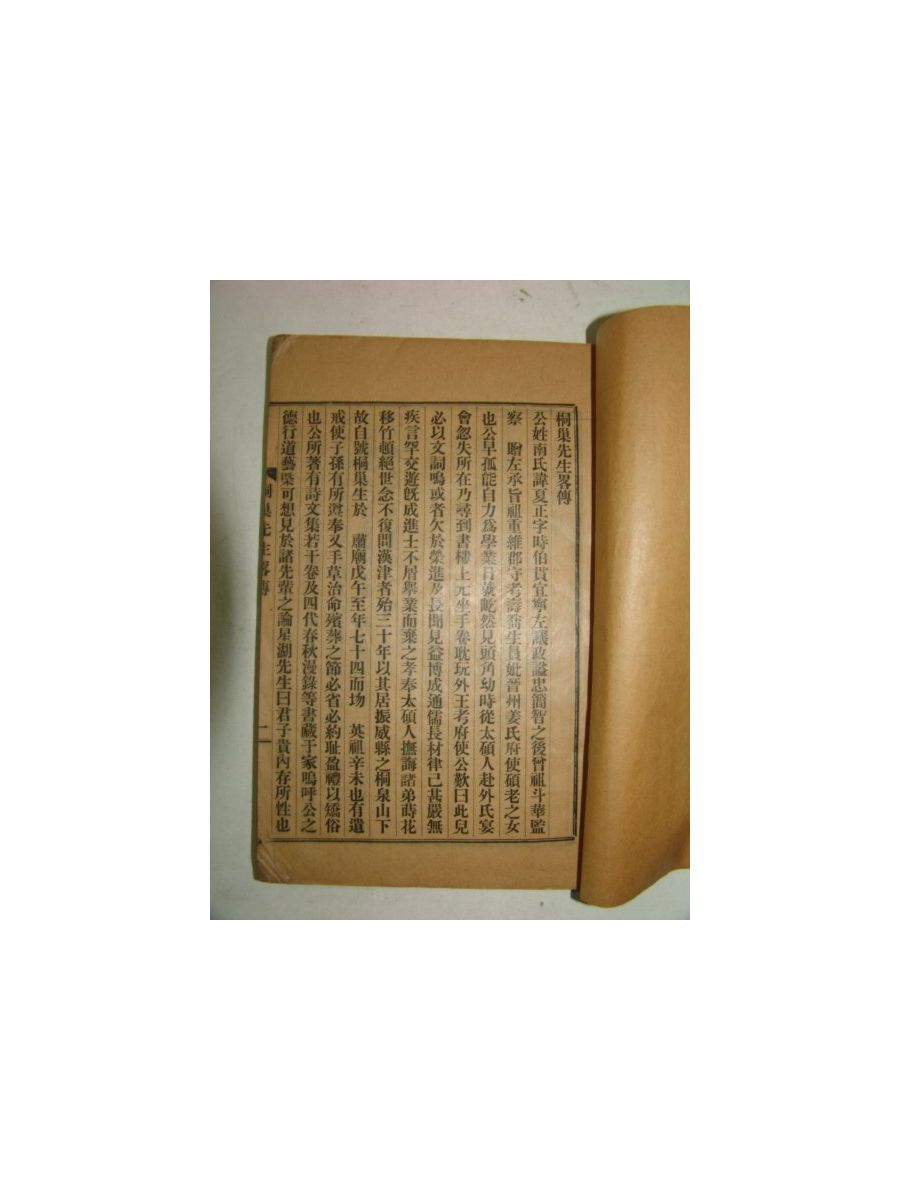 桐巢先生畧傳
公姓南氏諱夏正字時伯貫宜寧左議政謚忠簡智之後曾祖斗華監
察　贈左承旨祖重維郡守考壽喬生員妣晉州姜氏府使碩老之女
也公早孤能自力爲學業日號屹然見頭角幼時從太碩人赴外氏宴
會忽失所在乃尋到書樓上兀坐手卷耽玩外王考府使公歎曰此兒
必以文詞鳴或者欠於榮進及長聞見益博成通儒長材律己甚嚴無
疾言罕交遊旣成進士不屑擧業而棄之孝奉太碩人撫誨諸弟蒔花
移竹頓絕世念不復問漢津者殆三十年以其居振威縣之桐泉山下
故自號桐巢生於　肅廟戊午至年七十四而圽　英祖辛未也有遺
戒使子孫有所遵奉又手草治命殯葬之節必省必約耻盈禮以矯俗
也公所著有詩文集若干卷及四代春秋漫錄等書藏于家嗚呼公之
德行道藝槩可想見於諸先輩之論星湖先生曰君子貴內存所性也
桐巢先生畧傳
一